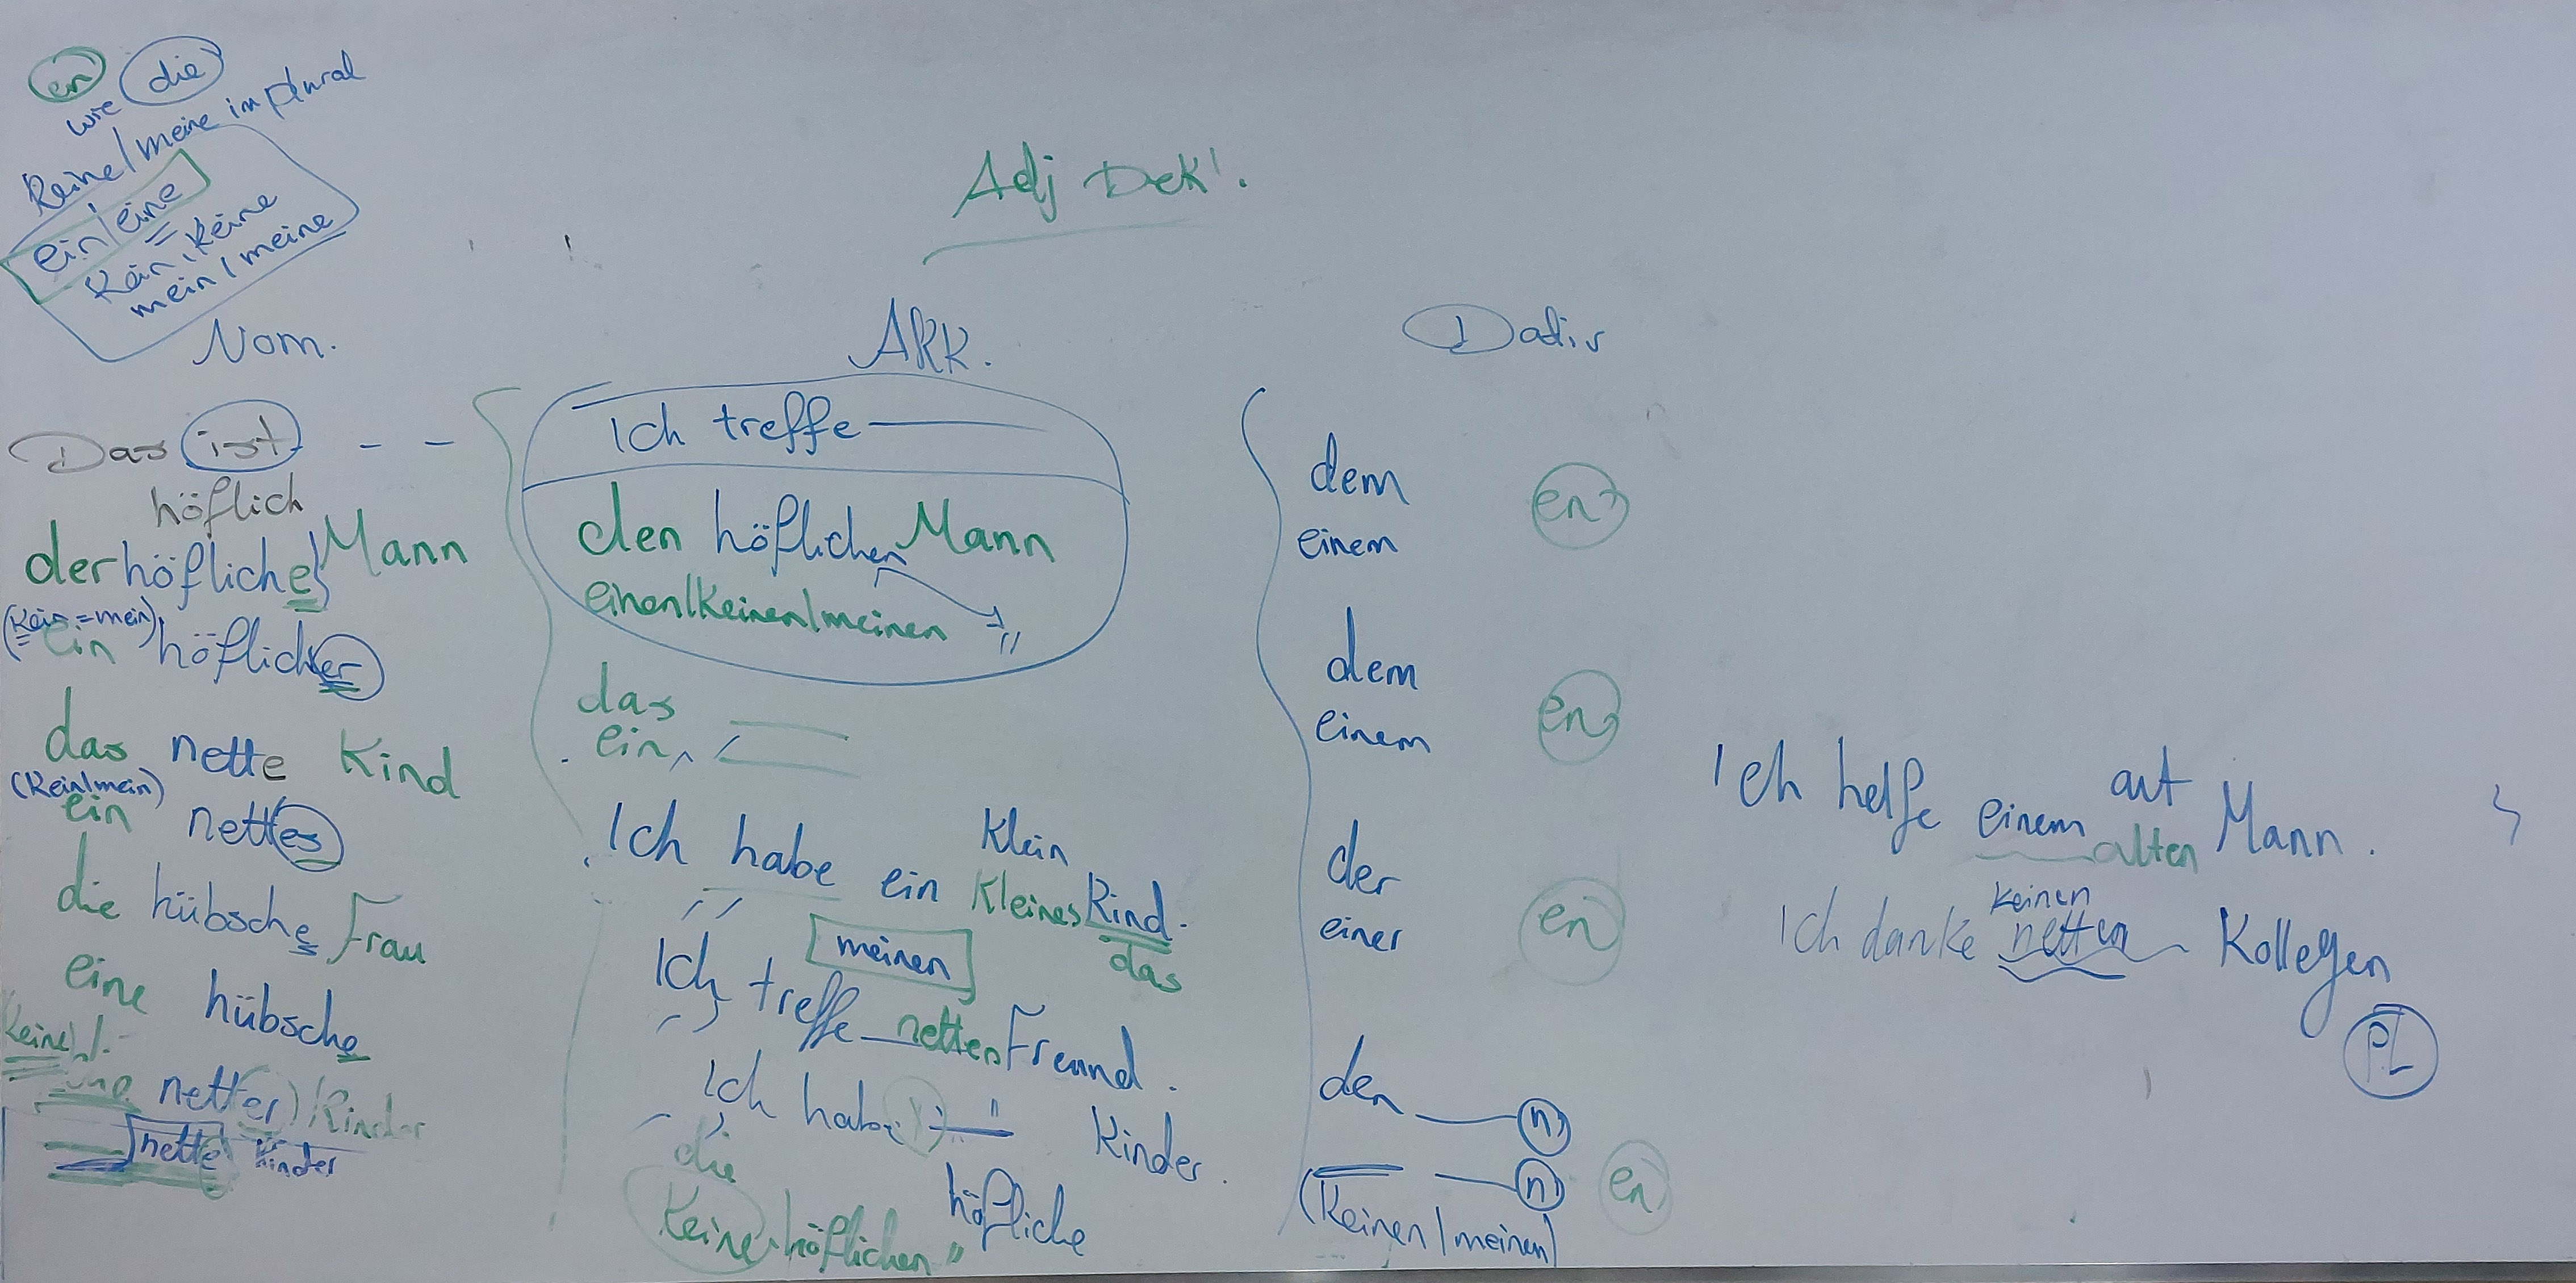 en die
wie
Keine/meine im plural
ein/eine
Kein, Keine
mein/meine
Adj Dek!.
Nom.
Das ist - -
höflich
der höfliche Mann
(Kein=mein)
ein höflicher
das nette Kind
(Kein/mein)
ein nettes
die hübsche Frau
eine hübsche
Keine
netter Kinder
nette Kinder
AKK.
Ich treffe
den höflichen Mann
einen/Keinen/meinen "
das
ein
Klein
Ich habe ein Kleines Kind.
das
meinen
Ich treffe netten Freund.
Ich habe Kinder.
die höfliche
Keine höflichen "
Dativ
dem en
einem
dem en
einem
der
einer en
den n
n en
(Keinen/meinen)
alt
Ich helfe einem alten Mann.
Keinen
Ich danke netten Kollegen
PL